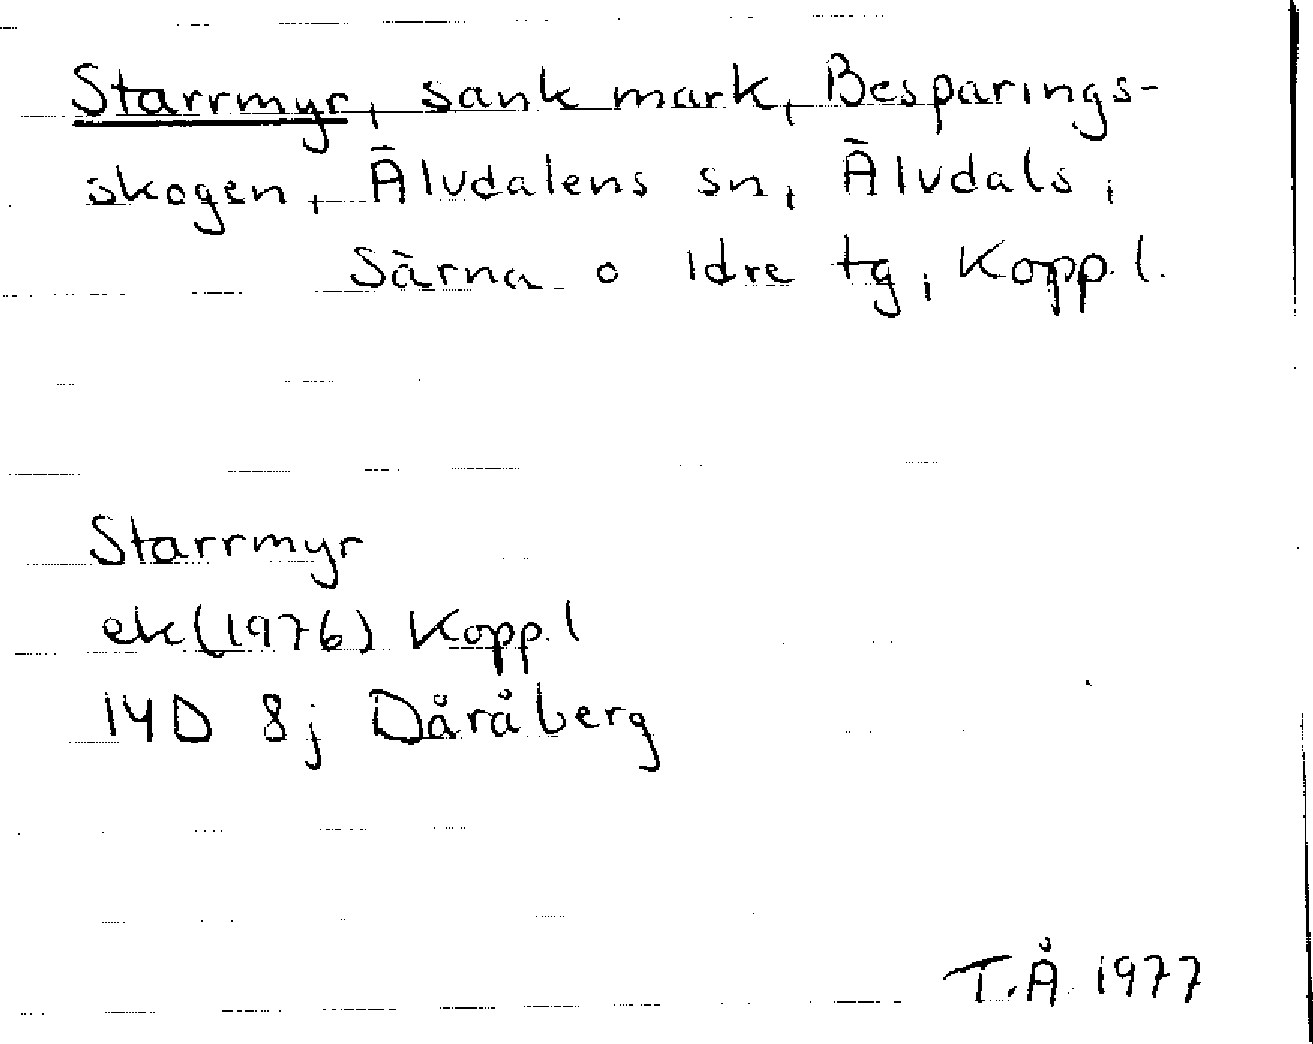 Starrmyr, sank mark, Besparings-
skogen, Älvdalens sn, Älvdals,
Särna o Idre tg, Kopp. l.
Starrmyr
ek (1976) Kopp. l
14D 8j Dåråberg
T.Å 1977